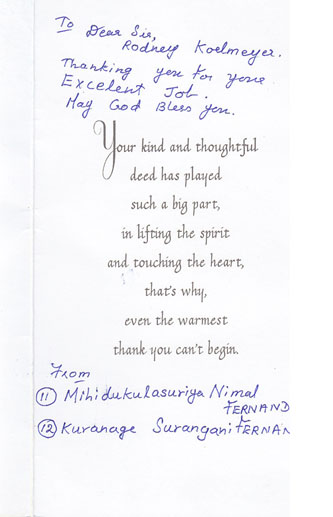 To Dear Sir,
Rodney Koelmeyer.
Thanking you for your
Excelent Job.
May God Bless you.
Your kind and thoughtful
deed has played
such a big part,
in lifting the spirit
and touching the heart,
that's why,
even the warmest
thank you can't begin.
From
11 Mihidukulasuriya Nimal
FERNAND
12 Kuranage Surangani FERNAN